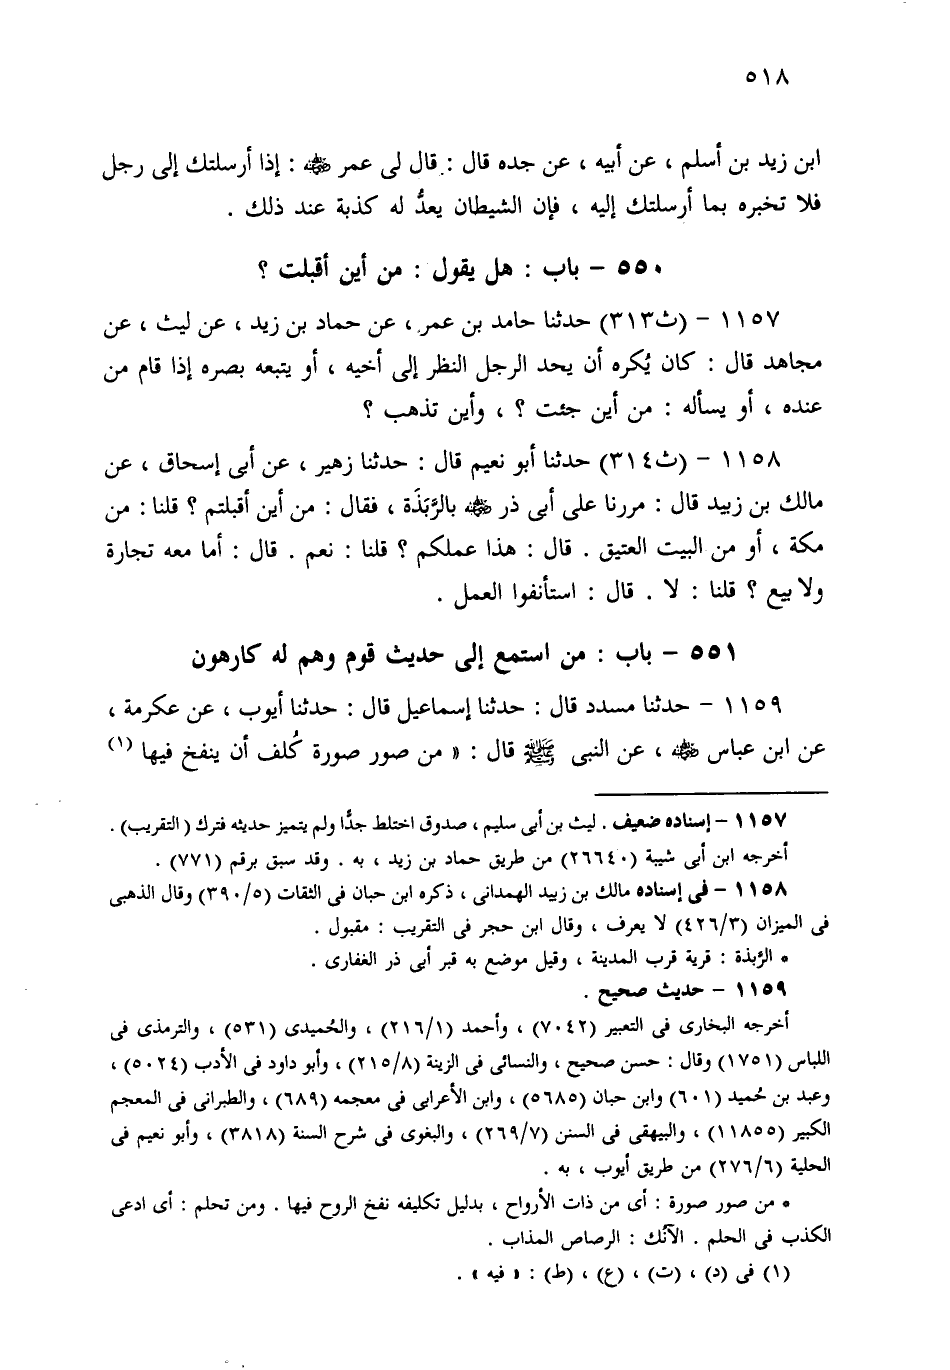 ٥١٨
ابن زيد بن أسلم ، عن أبيه ، عن جده قال : قال لى عمر ﷺ : إذا أرسلتك إلى رجل
فلا تخبره بما أرسلتك إليه ، فإن الشيطان يعدُّ له كذبة عند ذلك .
٥٥٠ – باب : هل يقول : من أين أقبلت ؟
١١٥٧ – (ث٣١٣) حدثنا حامد بن عمر ، عن حماد بن زيد ، عن ليث ، عن
مجاهد قال : كان يُكره أن يحد الرجل النظر إلى أخيه ، أو يتبعه بصره إذا قام من
عنده ، أو يسأله : من أين جئت ؟ ، وأين تذهب ؟
١١٥٨ – (ث٣١٤) حدثنا أبو نعيم قال : حدثنا زهير ، عن أبى إسحاق ، عن
مالك بن زبيد قال : مررنا على أبى ذر رضي الله عنه بالرَّبَذَة ، فقال : من أين أقبلتم ؟ قلنا : من
مكة ، أو من البيت العتيق . قال : هذا عملكم ؟ قلنا : نعم . قال : أما معه تجارة
ولا بيع ؟ قلنا : لا . قال : استأنفوا العمل .
٥٥١ – باب : من استمع إلى حديث قوم وهم له كارهون
١١٥٩ – حدثنا مسدد قال : حدثنا إسماعيل قال : حدثنا أيوب ، عن عكرمة ،
عن ابن عباس رضي الله عنه ، عن النبى ﷺ قال : « من صور صورة كُلف أن ينفخ فيها (١)
١١٥٧ – إسناده ضعيف . ليث بن أبى سليم ، صدوق اختلط جدًّا ولم يتميز حديثه فترك ( التقريب) .
أخرجه ابن أبى شيبة (٢٦٦٤٠) من طريق حماد بن زيد ، به . وقد سبق برقم (٧٧١) .
١١٥٨ – فى إسناده مالك بن زبيد الهمدانى ، ذكره ابن حبان فى الثقات (٣٩٠/٥) وقال الذهبى
فى الميزان (٤٢٦/٣) لا يعرف ، وقال ابن حجر فى التقريب : مقبول .
* الرَّبذة : قرية قرب المدينة ، وقيل موضع به قبر أبى ذر الغفارى .
١١٥٩ – حديث صحيح .
أخرجه البخارى فى التعبير (٧٠٤٢) ، وأحمد (٢١٦/١) ، والحُميدى (٥٣١) ، والترمذى فى
اللباس (١٧٥١) وقال : حسن صحيح ، والنسائى فى الزينة (٢١٥/٨) ، وأبو داود فى الأدب (٥٠٢٤) ،
وعبد بن حُميد (٦٠١) وابن حبان (٥٦٨٥) ، وابن الأعرابى فى معجمه (٦٨٩) ، والطبرانى فى المعجم
الكبير (١١٨٥٥) ، والبيهقى فى السنن (٢٦٩/٧) ، والبغوى فى شرح السنة (٣٨١٨) ، وأبو نعيم فى
الحلية (٢٧٦/٦) من طريق أيوب ، به .
* من صور صورة : أى من ذات الأرواح ، بدليل تكليفه نفخ الروح فيها . ومن تحلم : أى ادعى
الكذب فى الحلم . الآنُك : الرصاص المذاب .
(١) فى (د) ، (ت) ، (ع) ، (ط) : « فيه » .